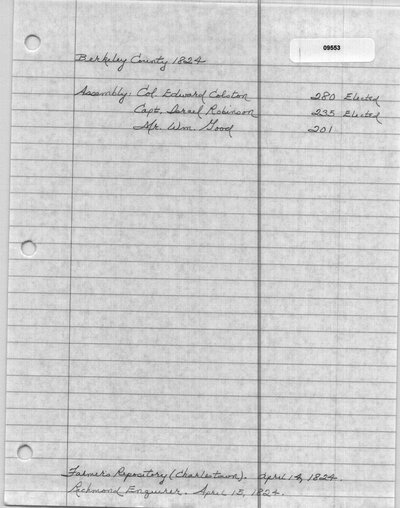 09553
Berkeley County 1824
Assembly: Col. Edward Colston 280 Elected
Capt. Israel Robinson 235 Elected
Mr. Wm. Good 201
Farmer's Repository (Charlestown). April 14, 1824.
Richmond Enquirer. April 15, 1824.